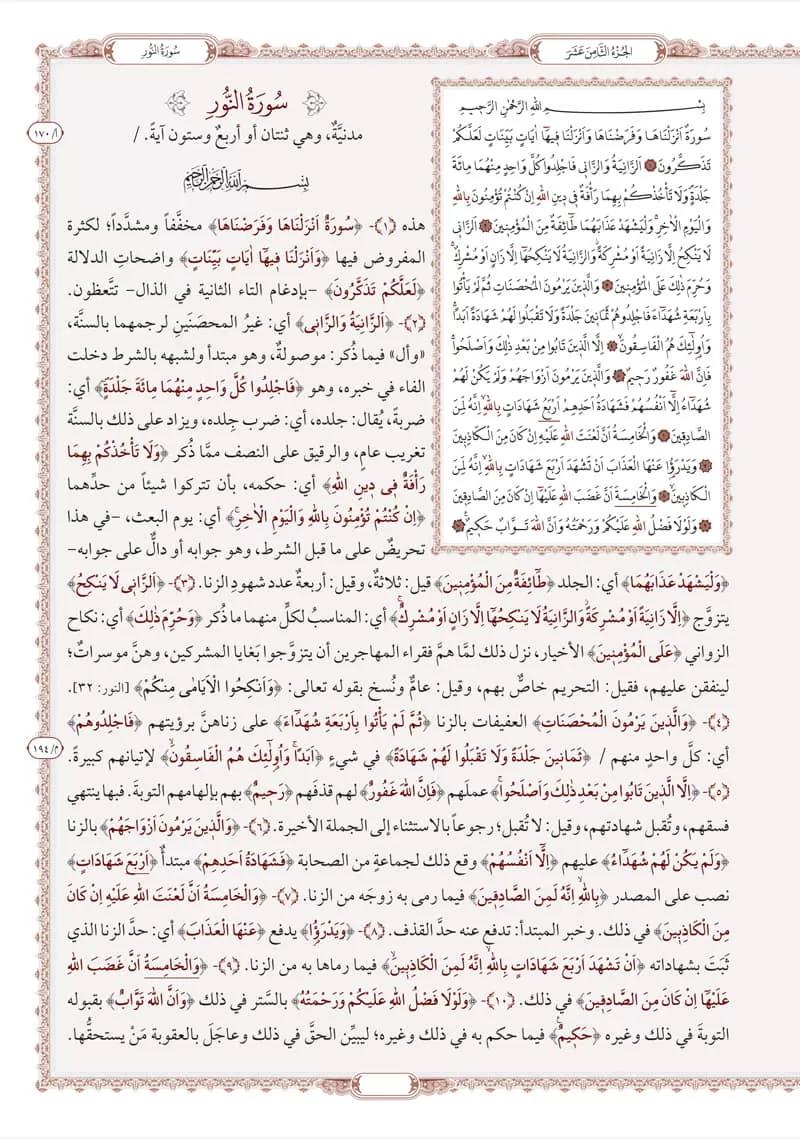 الجُزءُ الثَّامِن عَشَرَ
سُورَةُ النُّورِ
بِسْمِ اللهِ الرَّحْمٰنِ الرَّحِيمِ
سُورَةٌ اَنْزَلْنَاهَا وَفَرَضْنَاهَا وَاَنْزَلْنَا فِيهَٓا اٰيَاتٍ بَيِّنَاتٍ لَعَلَّكُمْ
تَذَكَّرُونَ اَلزَّانِيَةُ وَالزَّانِى فَاجْلِدُوا كُلَّ وَاحِدٍ مِنْهُمَا مِائَةَ
جَلْدَةٍ وَلَا تَأْخُذْكُمْ بِهِمَا رَأْفَةٌ فِى دِينِ اللهِ اِنْ كُنْتُمْ تُؤْمِنُونَ بِاللهِ
وَالْيَوْمِ الْاٰخِرِ وَلْيَشْهَدْ عَذَابَهُمَا طَٓائِفَةٌ مِنَ الْمُؤْمِنِينَ اَلزَّانِى
لَا يَنْكِحُ اِلَّا زَانِيَةً اَوْ مُشْرِكَةً وَالزَّانِيَةُ لَا يَنْكِحُهَٓا اِلَّا زَانٍ اَوْ مُشْرِكٌ
وَحُرِّمَ ذٰلِكَ عَلَى الْمُؤْمِنِينَ وَالَّذِينَ يَرْمُونَ الْمُحْصَنَاتِ ثُمَّ لَمْ يَأْتُوا
بِاَرْبَعَةِ شُهَدَٓاءَ فَاجْلِدُوهُمْ ثَمَانِينَ جَلْدَةً وَلَا تَقْبَلُوا لَهُمْ شَهَادَةً اَبَدًا
وَاُولٰٓئِكَ هُمُ الْفَاسِقُونَ اِلَّا الَّذِينَ تَابُوا مِنْ بَعْدِ ذٰلِكَ وَاَصْلَحُوا
فَاِنَّ اللهَ غَفُورٌ رَحِيمٌ وَالَّذِينَ يَرْمُونَ اَزْوَاجَهُمْ وَلَمْ يَكُنْ لَهُمْ
شُهَدَٓاءُ اِلَّٓا اَنْفُسُهُمْ فَشَهَادَةُ اَحَدِهِمْ اَرْبَعُ شَهَادَاتٍ بِاللهِ اِنَّهُ لَمِنَ
الصَّادِقِينَ وَالْخَامِسَةُ اَنَّ لَعْنَتَ اللهِ عَلَيْهِ اِنْ كَانَ مِنَ الْكَاذِبِينَ
وَيَدْرَؤُا عَنْهَا الْعَذَابَ اَنْ تَشْهَدَ اَرْبَعَ شَهَادَاتٍ بِاللهِ اِنَّهُ لَمِنَ
الْكَاذِبِينَ وَالْخَامِسَةَ اَنَّ غَضَبَ اللهِ عَلَيْهَٓا اِنْ كَانَ مِنَ الصَّادِقِينَ
وَلَوْلَا فَضْلُ اللهِ عَلَيْكُمْ وَرَحْمَتُهُ وَاَنَّ اللهَ تَوَّابٌ حَكِيمٌ
سُورَةُ النُّورِ
أ/١٧٠
مدنيَّةٌ، وهي ثنتان أو أربعٌ وستون آيةً. /
بِسْمِ اللهِ الرَّحْمٰنِ الرَّحِيمِ
هذه ﴿١﴾- ﴿سُورَةٌ اَنْزَلْنَاهَا وَفَرَضْنَاهَا﴾ مخفَّفاً ومشدَّداً؛ لكثرة
المفروض فيها ﴿وَاَنْزَلْنَا فِيهَٓا اٰيَاتٍ بَيِّنَاتٍ﴾ واضحاتِ الدلالة
﴿لَعَلَّكُمْ تَذَكَّرُونَ﴾ -بإدغام التاء الثانية في الذال- تتَّعظون.
﴿٢﴾- ﴿اَلزَّانِيَةُ وَالزَّانِى﴾ أي: غيرُ المحصَنَينِ لرجمهما بالسنَّة،
و«أل» فيما ذُكر: موصولةٌ، وهو مبتدأ ولشبهه بالشرط دخلت
الفاء في خبره، وهو ﴿فَاجْلِدُوا كُلَّ وَاحِدٍ مِنْهُمَا مِائَةَ جَلْدَةٍ﴾ أي:
ضربةً، يُقال: جلده، أي: ضرب جِلده، ويزاد على ذلك بالسنَّة
تغريب عامٍ، والرقيق على النصف ممَّا ذُكر ﴿وَلَا تَأْخُذْكُمْ بِهِمَا
رَأْفَةٌ فِى دِينِ اللهِ﴾ أي: حكمه، بأن تتركوا شيئاً من حدِّهما
﴿اِنْ كُنْتُمْ تُؤْمِنُونَ بِاللهِ وَالْيَوْمِ الْاٰخِرِ﴾ أي: يوم البعث، -في هذا
تحريضٌ على ما قبل الشرط، وهو جوابه أو دالٌّ على جوابه-
﴿وَلْيَشْهَدْ عَذَابَهُمَا﴾ أي: الجلد ﴿طَٓائِفَةٌ مِنَ الْمُؤْمِنِينَ﴾ قيل: ثلاثةٌ، وقيل: أربعةٌ عدد شهودِ الزنا. ﴿٣﴾- ﴿اَلزَّانِى لَا يَنْكِحُ﴾
يتزوَّج ﴿اِلَّا زَانِيَةً اَوْ مُشْرِكَةً وَالزَّانِيَةُ لَا يَنْكِحُهَٓا اِلَّا زَانٍ اَوْ مُشْرِكٌ﴾ أي: المناسبُ لكلٍّ منهما ما ذُكر ﴿وَحُرِّمَ ذٰلِكَ﴾ أي: نكاح
الزواني ﴿عَلَى الْمُؤْمِنِينَ﴾ الأخيار، نزل ذلك لمَّا همَّ فقراء المهاجرين أن يتزوَّجوا بَغايا المشركين، وهنَّ موسراتٌ؛
لينفقن عليهم، فقيل: التحريم خاصٌّ بهم، وقيل: عامٌّ ونُسخ بقوله تعالى: ﴿وَاَنْكِحُوا الْاَيَامٰى مِنْكُمْ﴾ [النور: ٣٢].
﴿٤﴾- ﴿وَالَّذِينَ يَرْمُونَ الْمُحْصَنَاتِ﴾ العفيفات بالزنا ﴿ثُمَّ لَمْ يَأْتُوا بِاَرْبَعَةِ شُهَدَٓاءَ﴾ على زناهنَّ برؤيتهم ﴿فَاجْلِدُوهُمْ﴾
م/١٩٤
أي: كلَّ واحدٍ منهم / ﴿ثَمَانِينَ جَلْدَةً وَلَا تَقْبَلُوا لَهُمْ شَهَادَةً﴾ في شيءٍ ﴿اَبَدًا وَاُولٰٓئِكَ هُمُ الْفَاسِقُونَ﴾ لإتيانهم كبيرةً.
﴿٥﴾- ﴿اِلَّا الَّذِينَ تَابُوا مِنْ بَعْدِ ذٰلِكَ وَاَصْلَحُوا﴾ عملَهم ﴿فَاِنَّ اللهَ غَفُورٌ﴾ لهم قذفَهم ﴿رَحِيمٌ﴾ بهم بإلهامهم التوبةَ. فبها ينتهي
فسقهم، وتُقبل شهادتهم، وقيل: لا تُقبل؛ رجوعاً بالاستثناء إلى الجملة الأخيرة. ﴿٦﴾- ﴿وَالَّذِينَ يَرْمُونَ اَزْوَاجَهُمْ﴾ بالزنا
﴿وَلَمْ يَكُنْ لَهُمْ شُهَدَٓاءُ﴾ عليهم ﴿اِلَّٓا اَنْفُسُهُمْ﴾ وقع ذلك لجماعةٍ من الصحابة ﴿فَشَهَادَةُ اَحَدِهِمْ﴾ مبتدأٌ ﴿اَرْبَعَ شَهَادَاتٍ﴾
نصب على المصدر ﴿بِاللهِ اِنَّهُ لَمِنَ الصَّادِقِينَ﴾ فيما رمى به زوجَه من الزنا. ﴿٧﴾- ﴿وَالْخَامِسَةُ اَنَّ لَعْنَتَ اللهِ عَلَيْهِ اِنْ كَانَ
مِنَ الْكَاذِبِينَ﴾ في ذلك. وخبر المبتدأ: تدفع عنه حدَّ القذف. ﴿٨﴾- ﴿وَيَدْرَؤُا﴾ يدفع ﴿عَنْهَا الْعَذَابَ﴾ أي: حدَّ الزنا الذي
ثَبَتَ بشهاداته ﴿اَنْ تَشْهَدَ اَرْبَعَ شَهَادَاتٍ بِاللهِ اِنَّهُ لَمِنَ الْكَاذِبِينَ﴾ فيما رماها به من الزنا. ﴿٩﴾- ﴿وَالْخَامِسَةَ اَنَّ غَضَبَ اللهِ
عَلَيْهَٓا اِنْ كَانَ مِنَ الصَّادِقِينَ﴾ في ذلك. ﴿١٠﴾- ﴿وَلَوْلَا فَضْلُ اللهِ عَلَيْكُمْ وَرَحْمَتُهُ﴾ بالسَّتر في ذلك ﴿وَاَنَّ اللهَ تَوَّابٌ﴾ بقبوله
التوبةَ في ذلك وغيره ﴿حَكِيمٌ﴾ فيما حكم به في ذلك وغيره؛ ليبيِّن الحقَّ في ذلك وعاجَلَ بالعقوبة مَنْ يستحقُّها.